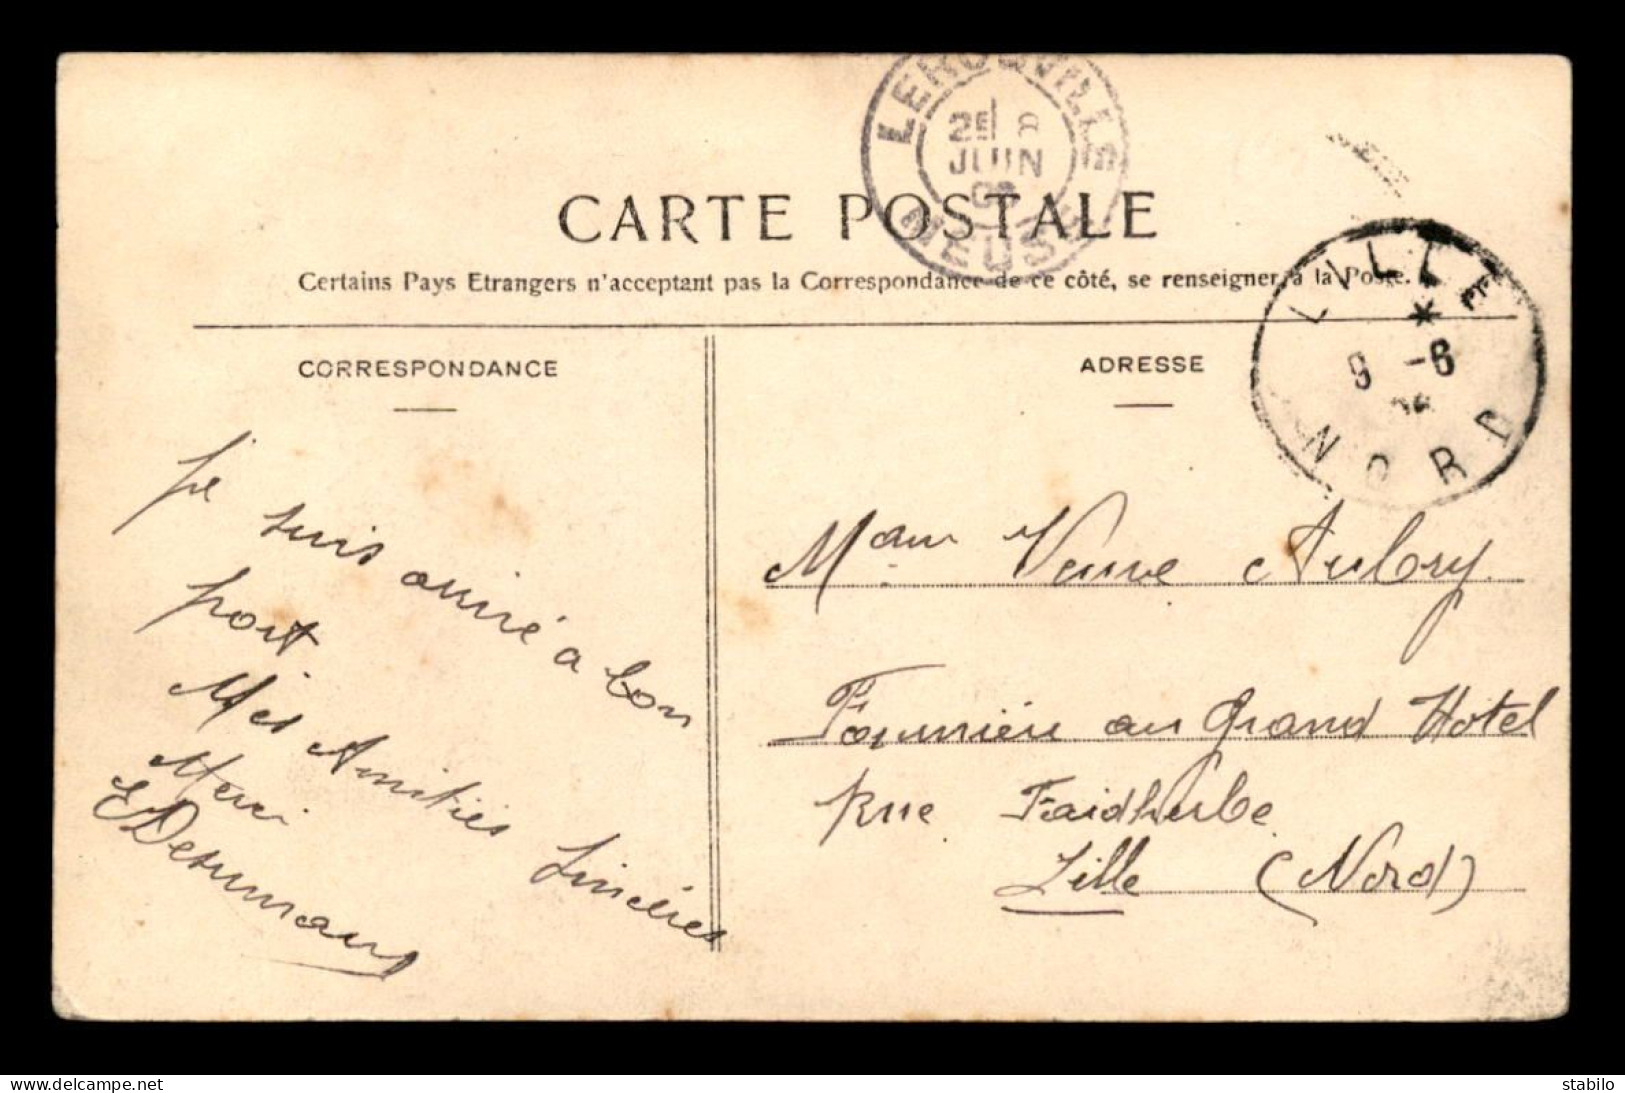 LEROUVILLE
2E 8
JUIN
MEUSE
CARTE POSTALE
Certains Pays Etrangers n'acceptant pas la Correspondance de ce côté, se renseigner à la Poste.
LILLE
9 -6
NORD
CORRESPONDANCE
Je suis arrivé a bon
port.
Mes Amitiés Sincères
Merci
ADRESSE
Mam Veuve Aubry
au Grand Hotel
Rue Faidherbe
Lille (Nord)
www.delcampe.net
stabilo